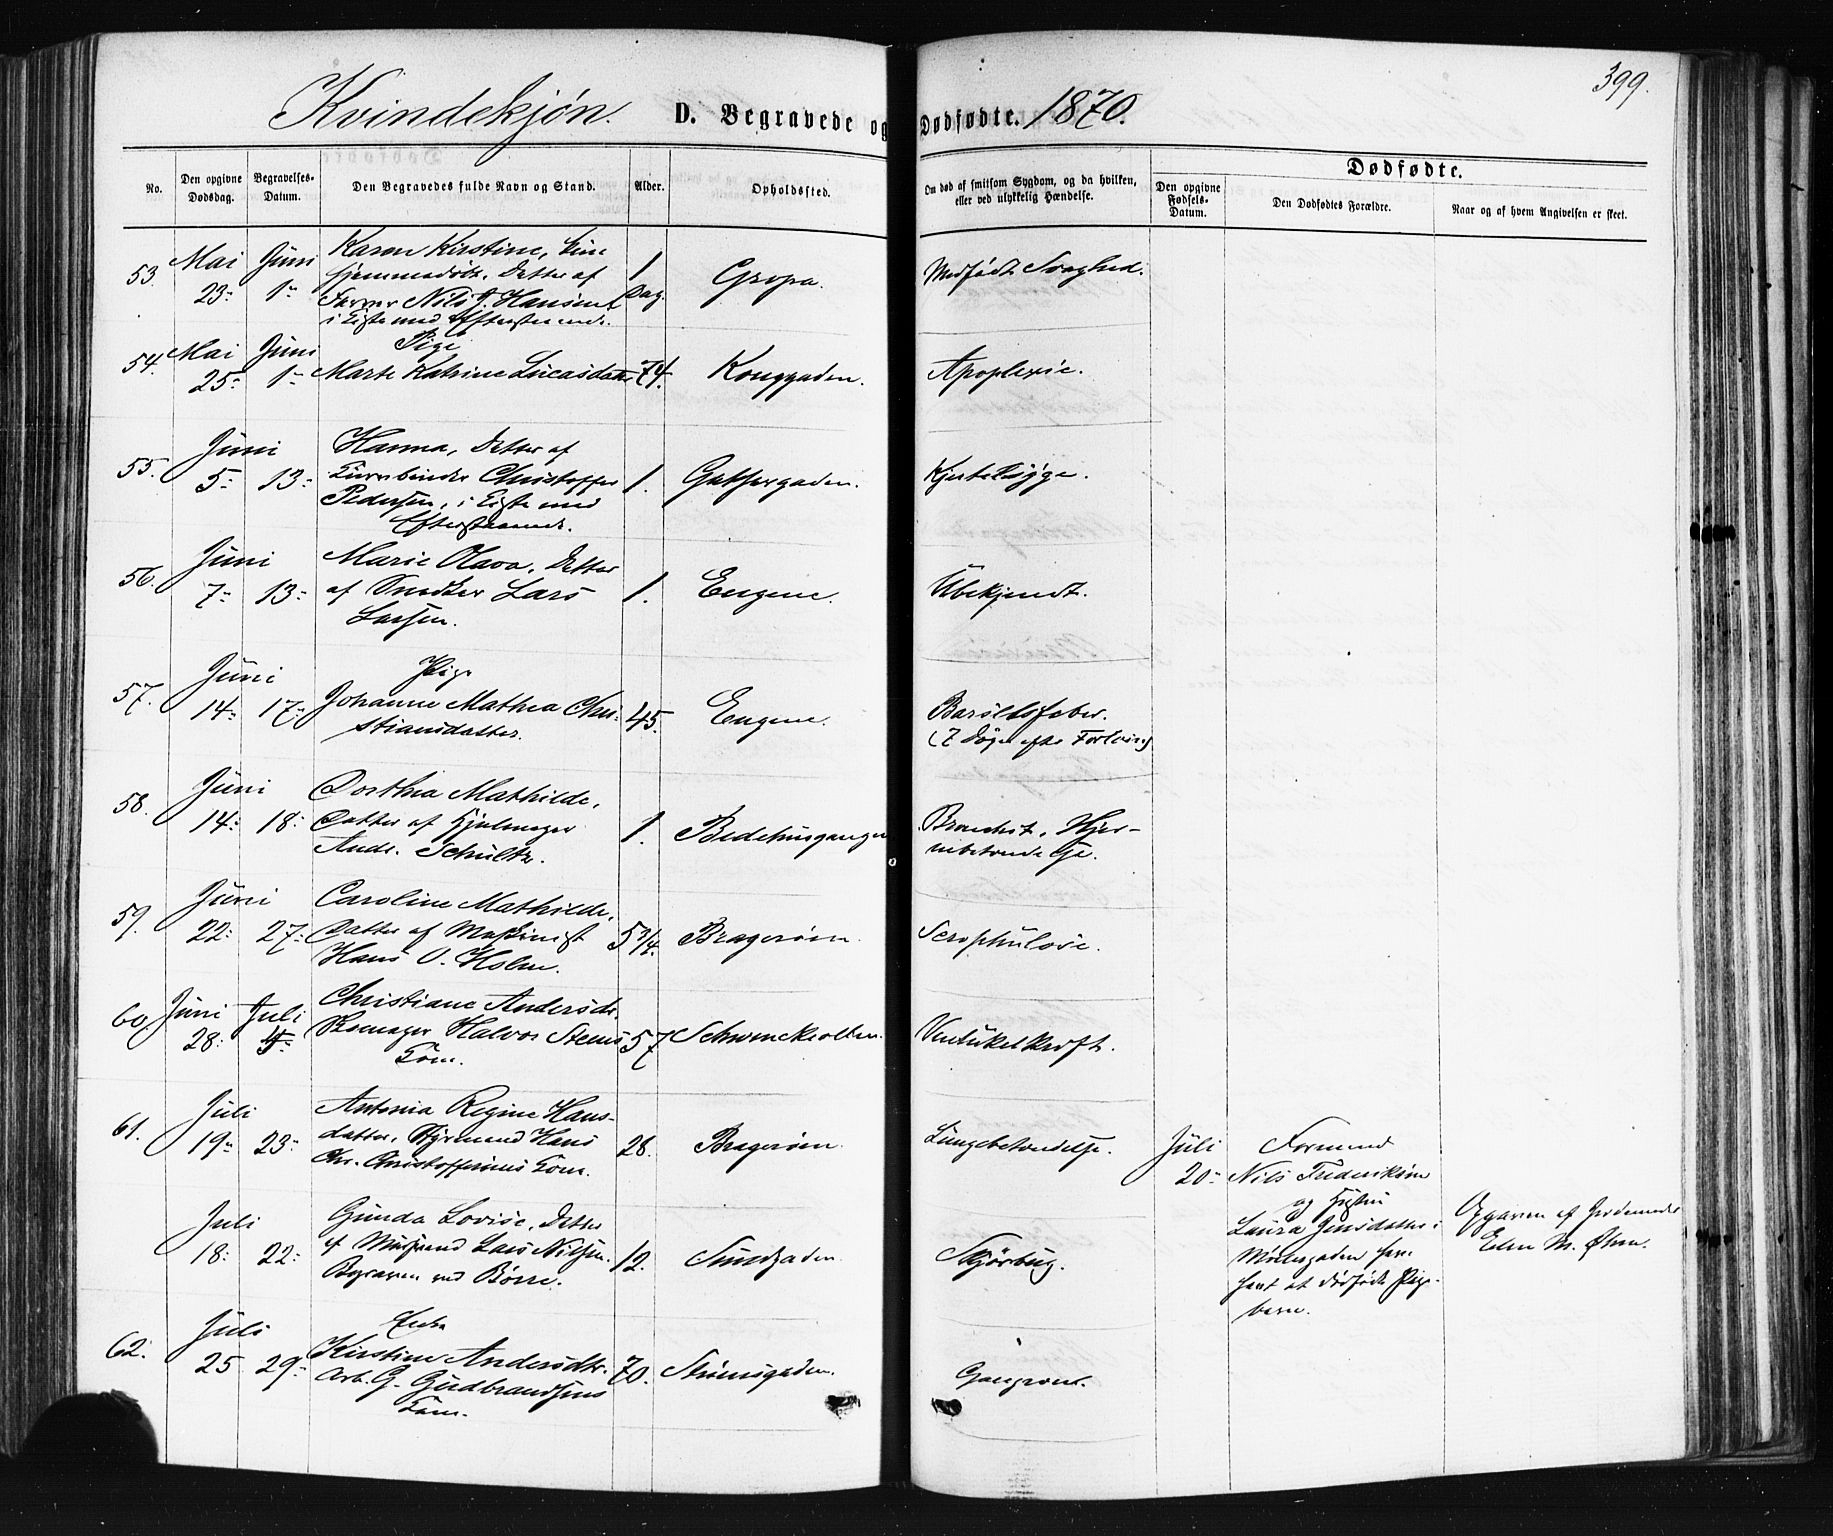 399.
Kvindekjøn. D. Begravede og Dødfødte. 1870.
No.
Den opgivne Dødsdag.
Begravelses-Datum.
Den Begravedes fulde Navn og Stand.
Alder.
Opholdssted.
Om død af smitsom Sygdom, og da hvilken,
eller ved ulykkelig Hændelse.
Dødfødte.
Den opgivne Fødsels-Datum.
Den Dødfødtes Forældre.
Naar og af hvem Angivelsen er skeet.
53. Mai 23: Juni 1-
Karen Kirstine,
hjemmedøbt, Datter af
Nils J. Hansen
i Kiste med Efterstaaende.
1 Dag. Gropa. Medfødt Svaghed.
54. Mai 25: Juni 1-
Pige
Marte Katrine Lucasdatter 74. Konggaden. Apoplexie.
55. Juni 5- 13:
Hanna, Datter af
Christoffer
Pedersen, i Kiste med
Efterstaaende.
1. Gjethergaden.
56. Juni 7- 13:
Marie Olava, Datter
af Snedker Lars
Larsen.
1. Engene. Ubekjendt.
57. Juni 14: 17-
Pige
Johanne Mathea Chri-
stiansdatter.
45. Engene. Barselsfeber.
(7 Døgn efter Forløsn)
58. Juni 14: 18:
Dorthea Mathilde,
Datter af Hjulmager
Andr. Schultz.
1. Bedehusgangen Bronchit. Hjer-
nebetændelse.
59. Juni 22: 27:
Caroline Mathilde,
Datter af Maskinist
Hans O. Holm.
5 3/4. Bragerøen. Scrophulose.
60. Juni 28: Juli 5-
Christiane Andersdr.
Halvor Steens
Kone.
57 Schwenckeolten. Ventrikelkræft.
61. Juli 19- 23:
Antonia Regine Hans-
datter, Styrmand Hans
Chr. Christoffersens Kone.
28. Bragerøen. Lungebetændelse.
Juli 18: 22:
Gunda Lovise, Datter
af Lars Nilsen.
Begraven ved Børre.
12. Sundgaden. Skjørbug.
Juli 20- Formand
Nils Frederiksen
og Hustru
Laura Jensdatter i
havt et dødfødt Pige-
barn.
Opgaven af Jordemoder
Elen M. Øhrn.
62. Juli 25 29-
Enke
Kirstine Andersdtr.
Arb. G. Gudbrandsens
Kone.
70. Strømsgaden. Gangrene.